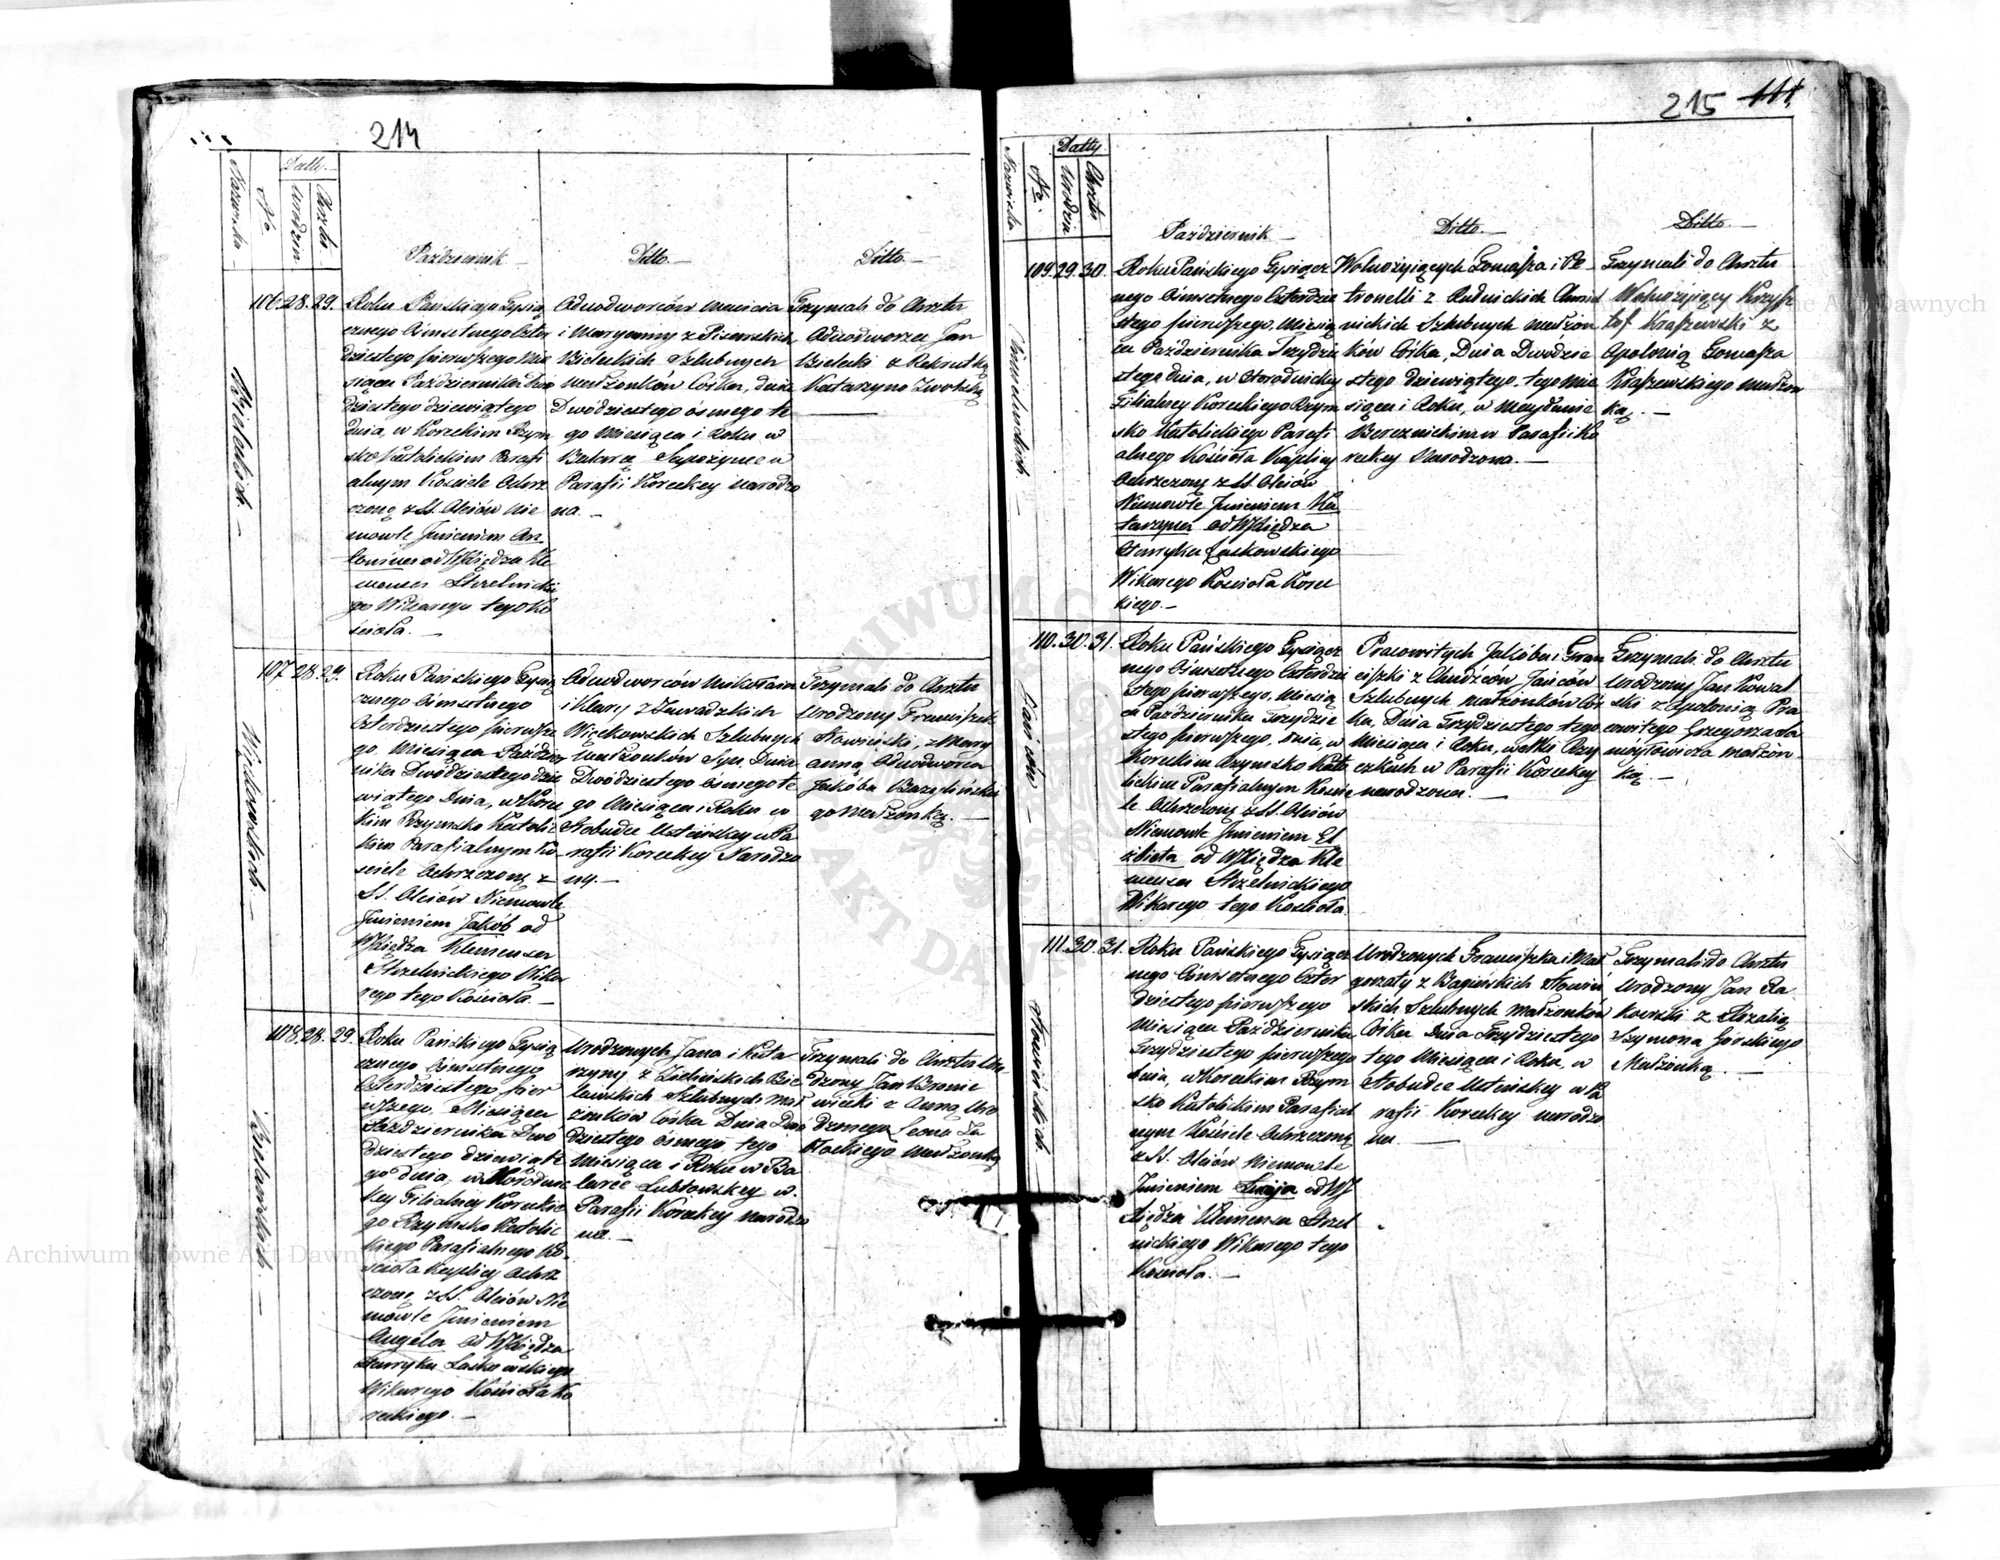 214
Nazwiska
No.
Datty.
Urodzin
Chrztu.
Październik —
Ditto. —
Ditto. —
Bieleckich. —
106. 28. 29.
Roku Pańskiego Tysią
cznego Ośmsetnego Czter
dziestego pierwszego Mie
siąca Października Dwo
dziestego dziewiątego
dnia, w Koreckim Rzym
sko Katolickim Parafi
alnym Kościele Ochrz
czono z SS. Olejów Nie
mowle Imieniem An
tonina od W Księdza Kle
mensa Strzelnickie
go Wikarego tego Ko
ścioła. —
Odnodworców Macieja
i Maryanny z Pisarskich
Bieleckich Szlubnych
małżonków Córka, dnia
Dwódziestego ósmego te
go Miesiąca i Roku w
Parafii Koreckey narodzo
na. —
Trzymali do Chrztu
Odnodworzec Jan
Bielecki z Rekrutką
Katarzyną Zwolską
Więckowskich. —
107 28. 29.
Roku Pańskiego Tysią
cznego Ośmsetnego
Czterdziestego pierwsze
go, Miesiąca Paździer
nika Dwódziestego dzie
wiątego Dnia, w Korec
kim Rzymsko Katolic
kim Parafialnym Ko
ściele Ochrzczony z
SS. Olejów Niemowle
Imieniem Jakób od
W Księdza Klemensa
Strzelnickiego Wika
rego tego Kościoła. —
Odnodworców Mikołaia
i Klary z Zawadzkich
Więckowskich Szlubnych
małżonków Syn Dnia
Dwódziestego ósmego te
go Miesiąca i Roku w
Słobudce Usteńskey w Pa
rafii Koreckey Narodzo
ny. —
Trzymali do Chrztu
Urodzony Franciszek
Słowiński, z Mary
anną Odnodworca
Jakóba Bazylińskie
go Małżonką. —
Bielawskich. —
108. 28. 29.
Roku Pańskiego Tysią
cznego Ośmsetnego
Czterdziestego pier
wszego, Miesiąca
Października Dwó
dziestego dziewiąte
go dnia, w Horodnic
key Filialney Koreckie
go Rzymsko Katolic
kiego Parafialnego Ko
ścioła Kaplicy Ochrz
czono z SS. Olejów Nie
mowle Imieniem
Angela od W Księdza
Henryka Laskowskiego
Wikarego Kościoła Ko
reckiego. —
Urodzonych Jana i Kata
rzyny z Zielińskich Bie
lawskich Szlubnych mał
żonków Córka Dnia Dwó
dziestego ósmego tego
Miesiąca i Roku w Ba
larce Lubtowskey w
Parafii Koreckey narodzo
na. —
Trzymali do Chrztu Uro
dzony Jan Bronie
wiecki z Anną Uro
dzonego Leona
Małżonką
215 111
Nazwiska
No.
Datty
Urodzin
Chrztu
Październik —
Ditto. —
Ditto. —
109. 29. 30.
Roku Pańskiego Tysiącz
nego Ośmsetnego Czterdzie
stego pierwszego, Miesią
ca Października Trzydzie
stego dnia, w Horodnickey
Filialney Koreckiego Rzym
sko Katolickiego Parafi
alnego Kościoła Kaplicy
Ochrzczony z SS. Olejów
Niemowle Imieniem Ka
tarzyna od W Księdza
Henryka Laskowskiego
Wikarego Kościoła Korec
kiego. —
Wolnożyiących Tomasza i Pe
tronelli z Rudnickich
Szlubnych małżon
ków Córka, Dnia Dwodzie
stego dziewiątego tego Mie
siąca i Roku, w Maydanie
Bereznickim w Parafii Ko
reckey Narodzona. —
Trzymali do Chrztu
Wolnożyiący Krzysz
tof Kraszewski z
Apolonią Tomasza
Kraszewskiego małżon
ką. —
Jańców —
110. 30. 31.
Roku Pańskiego Tysiącz
nego Ośmsetnego Czterdzie
stego pierwszego, Miesią
ca Października Trzydzie
stego pierwszego, dnia, w
Koreckim Rzymsko Kato
lickim Parafialnym Koście
le Ochrzczony z SS. Olejów
Niemowle Imieniem El
żbieta od W Księdza Kle
mensa Strzelnickiego
Wikarego tego Kościoła.
Pracowitych Jakóba i Fran
ciszki z Dudźców Jańców
Szlubnych małżonków Cór
ka, Dnia Trzydziestego tego
Miesiąca i Roku, w
w Parafii Koreckey
narodzona. —
Trzymali do Chrztu
Urodzony Jan Kowal
ski z Apolonią Pra
cowitego Grzegorza
małżon
ką. —
Słowińskich. —
111. 30. 31.
Roku Pańskiego Tysiącz
nego Ośmsetnego Czter
dziestego pierwszego
Miesiąca Października
Trzydziestego pierwszego
dnia, w Koreckim Rzym
sko Katolickim Parafial
nym Kościele Ochrzczono
z SS. Olejów Niemowle
Imieniem Łucija od W J
Księdza Klemensa Strzel
nickiego Wikarego tego
Kościoła. —
Urodzonych Franciszka i Mał
gorzaty z Bagińskich Słowiń
skich Szlubnych małżonków
Córka Dnia Trzydziestego
tego Miesiąca i Roku, w
Słobudce Usteńskey w Pa
rafii Koreckey narodzo
na. —
Trzymali do Chrztu
Urodzony Jan Ra
kowski z Rozalią
Szymona Górskiego
Małżonką. —
Archiwum Główne Akt Dawnych
Archiwum Główne Akt Dawnych